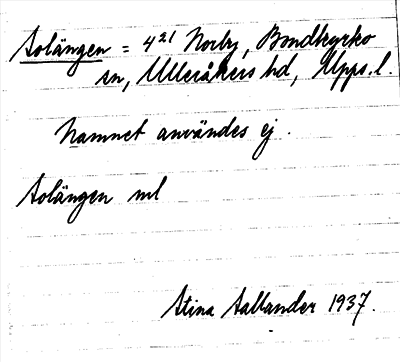 Solängen = 4²¹ Norby, Bondkyrko
sn, Ulleråkers hd, Upps. l.
Namnet användes ej.
Solängen ml
Stina Sallander 1937.